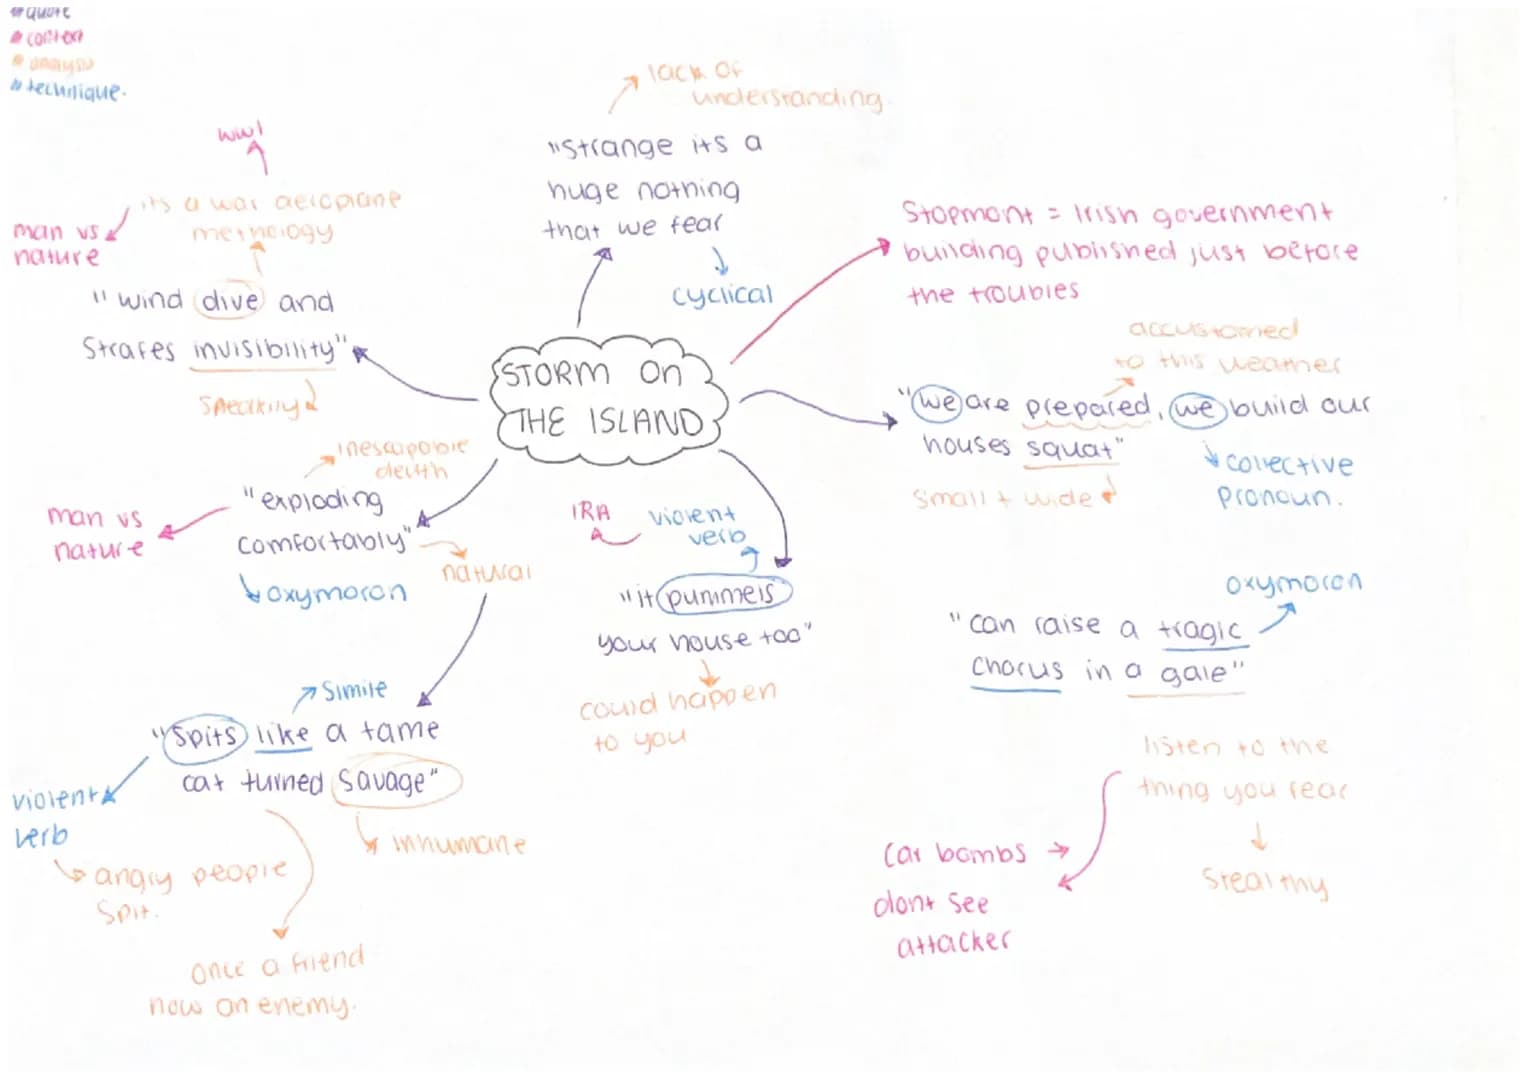 quote
context
analysis
technique.
lack of
understanding.
"strange its a
huge nothing
that we fear
cyclical
ww1
its a war aeroplane
methology
man vs
nature
"wind dive and
Strafes invisibility"
Sneakily
Stopmont = Irish government
building published just before
the troubles
STORM On
THE ISLAND
accustomed
to this weather
"we are prepared, we build our
houses squat"
small + wide
collective
pronoun.
inescapable
death
"exploding
comfortably"
man vs
nature
oxymoron
natural
IRA
violent
verb
"it pummels
your house too"
could happen
to you
oxymoron
"can raise a tragic
chorus in a gale"
listen to the
thing you fear
Stealthy
Car bombs
dont see
attacker
Simile
"Spits like a tame
cat turned Savage"
violent
verb
angry people
Spit.
inhumane
once a friend
now an enemy.